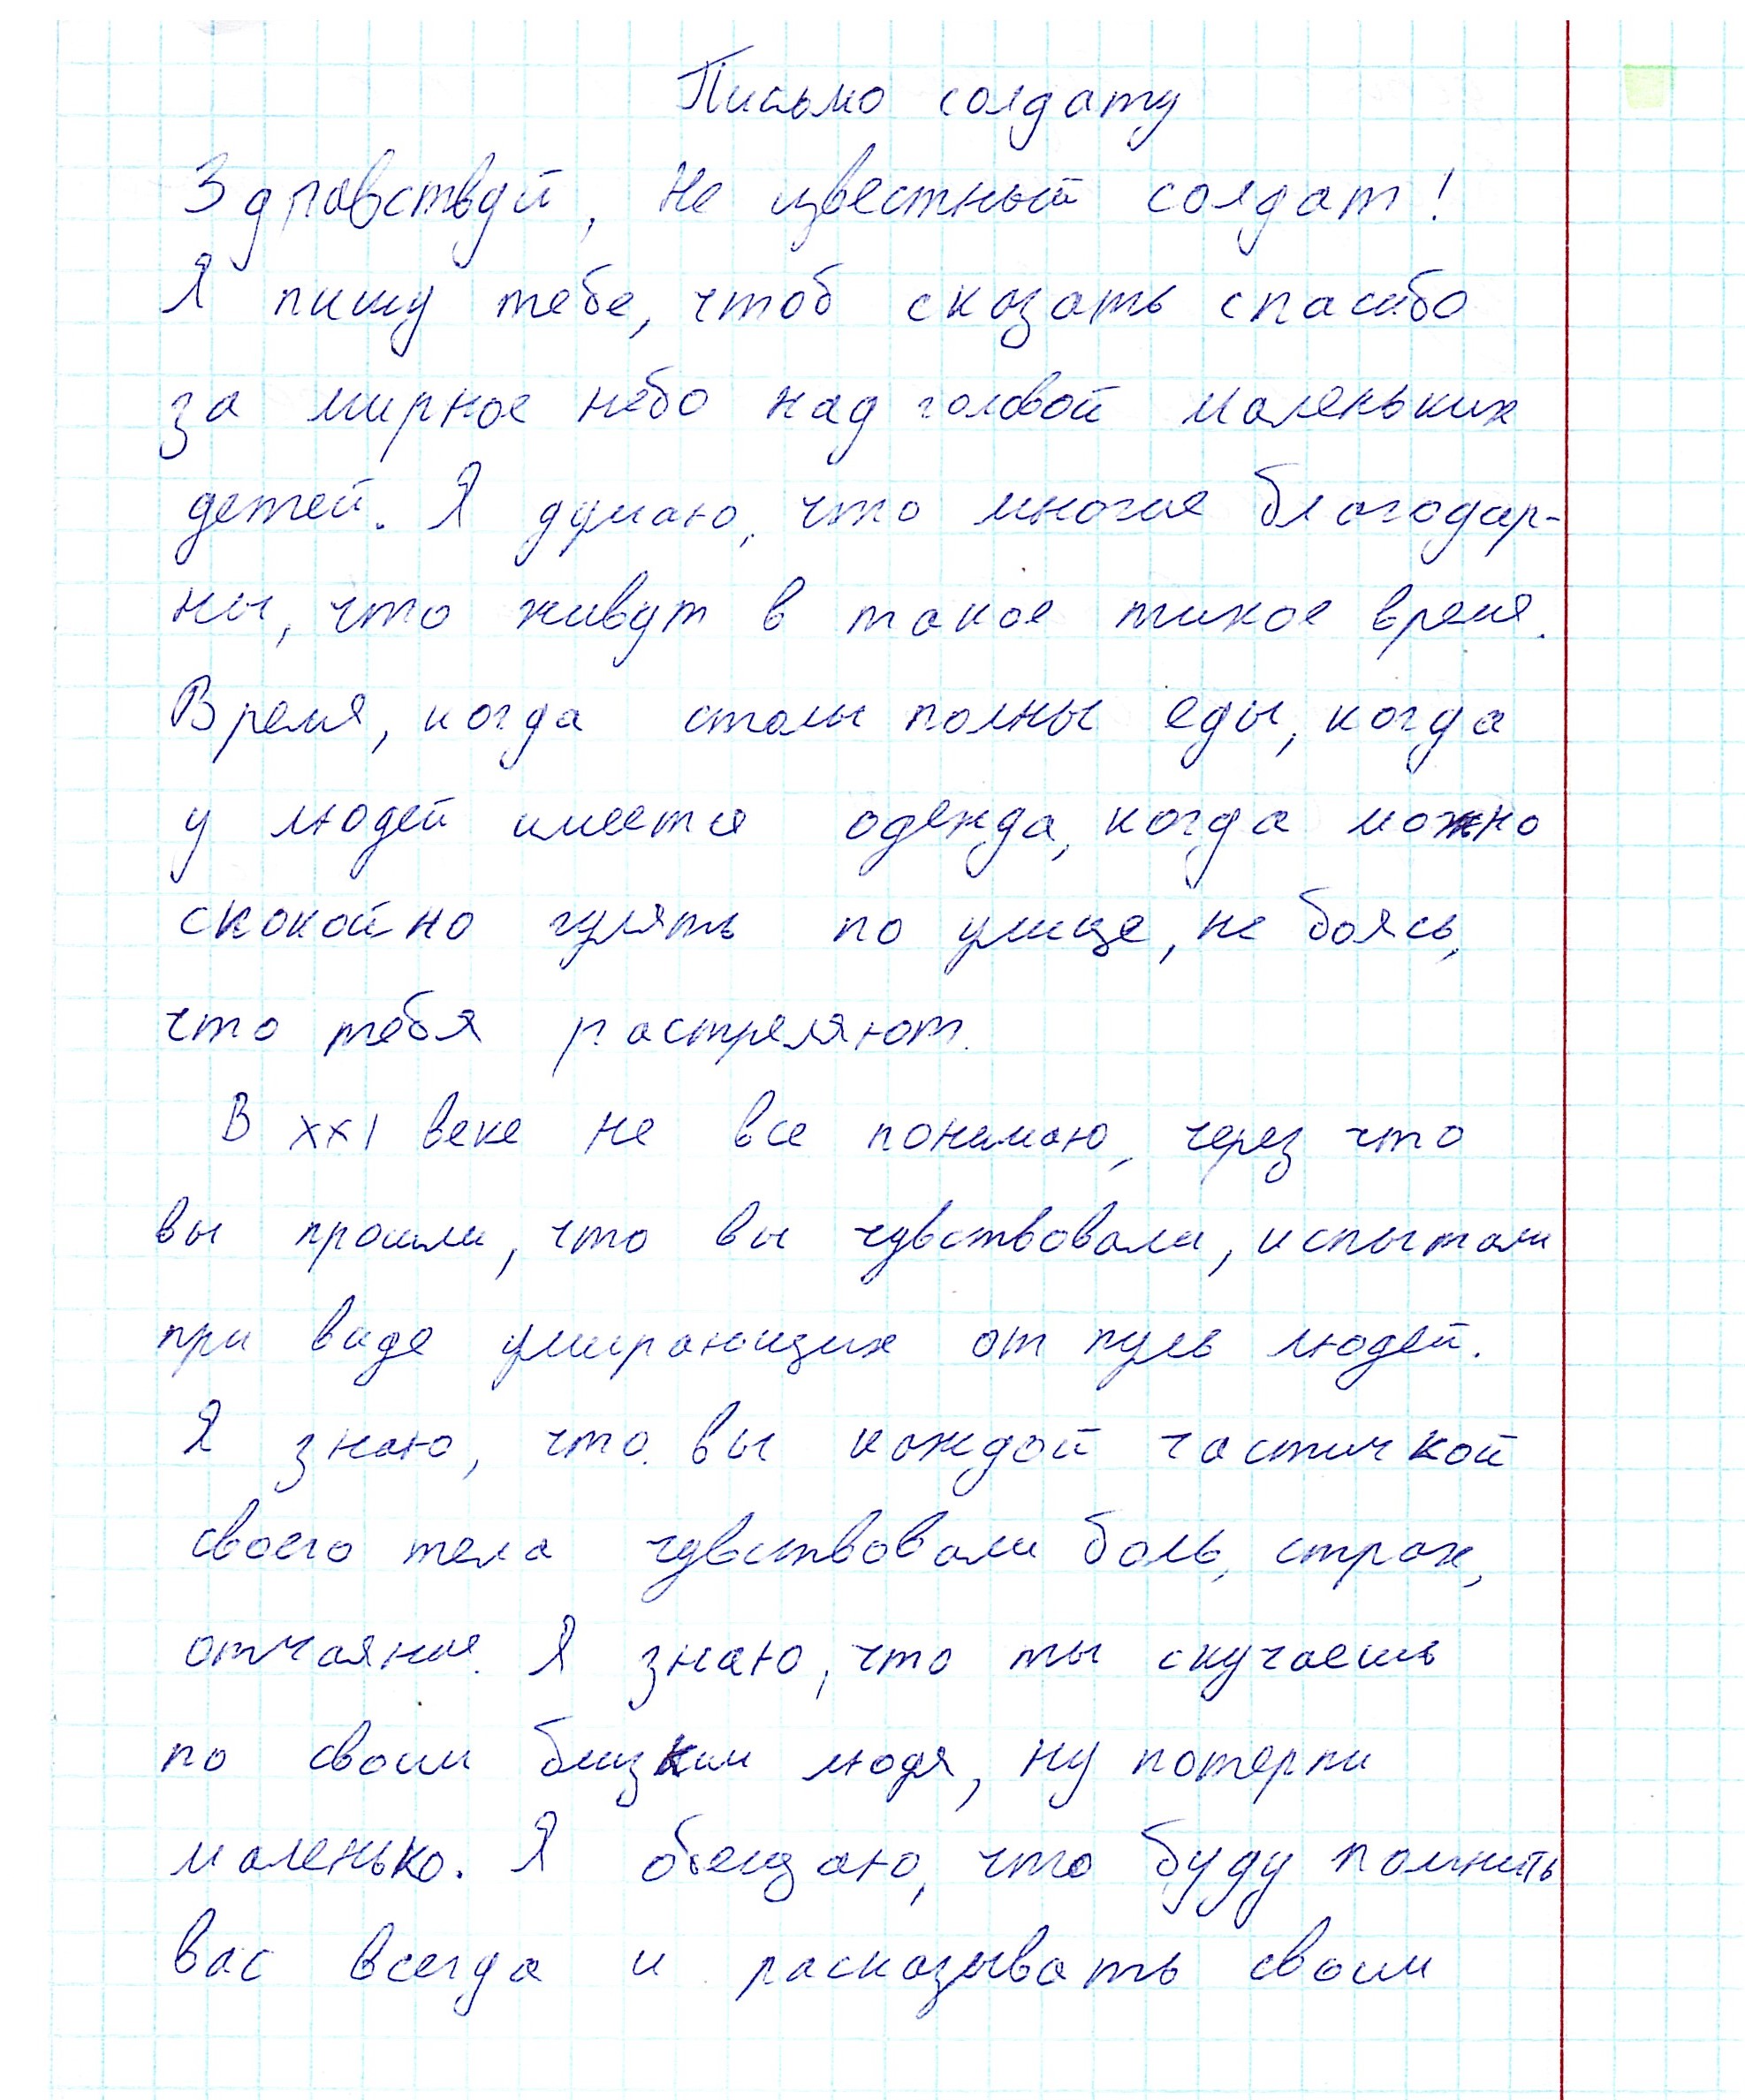 Письмо солдату
Здравствуй, Не известный солдат!
Я пишу тебе, чтоб сказать спасибо
за мирное небо над головой маленьких
детей. Я думаю, что многие благодар-
ны, что живут в такое тихое время.
Время, когда столы полны еды, когда
у людей имеется одежда, когда можно
скокойно гулять по улице, не боясь,
что тебя растреляют.
В XXI веке не все понимаю, через что
вы прошли, что вы чувствовали, испытали
при виде умирающих от пуль людей.
Я знаю, что вы каждой частичкой
своего тела чувствовали боль, страх,
отчаяние. Я знаю, что ты скучаешь
по своим близким людя, ну потерпи
маленько. Я обещаю, что буду помнить
вас всегда и расказывать своим